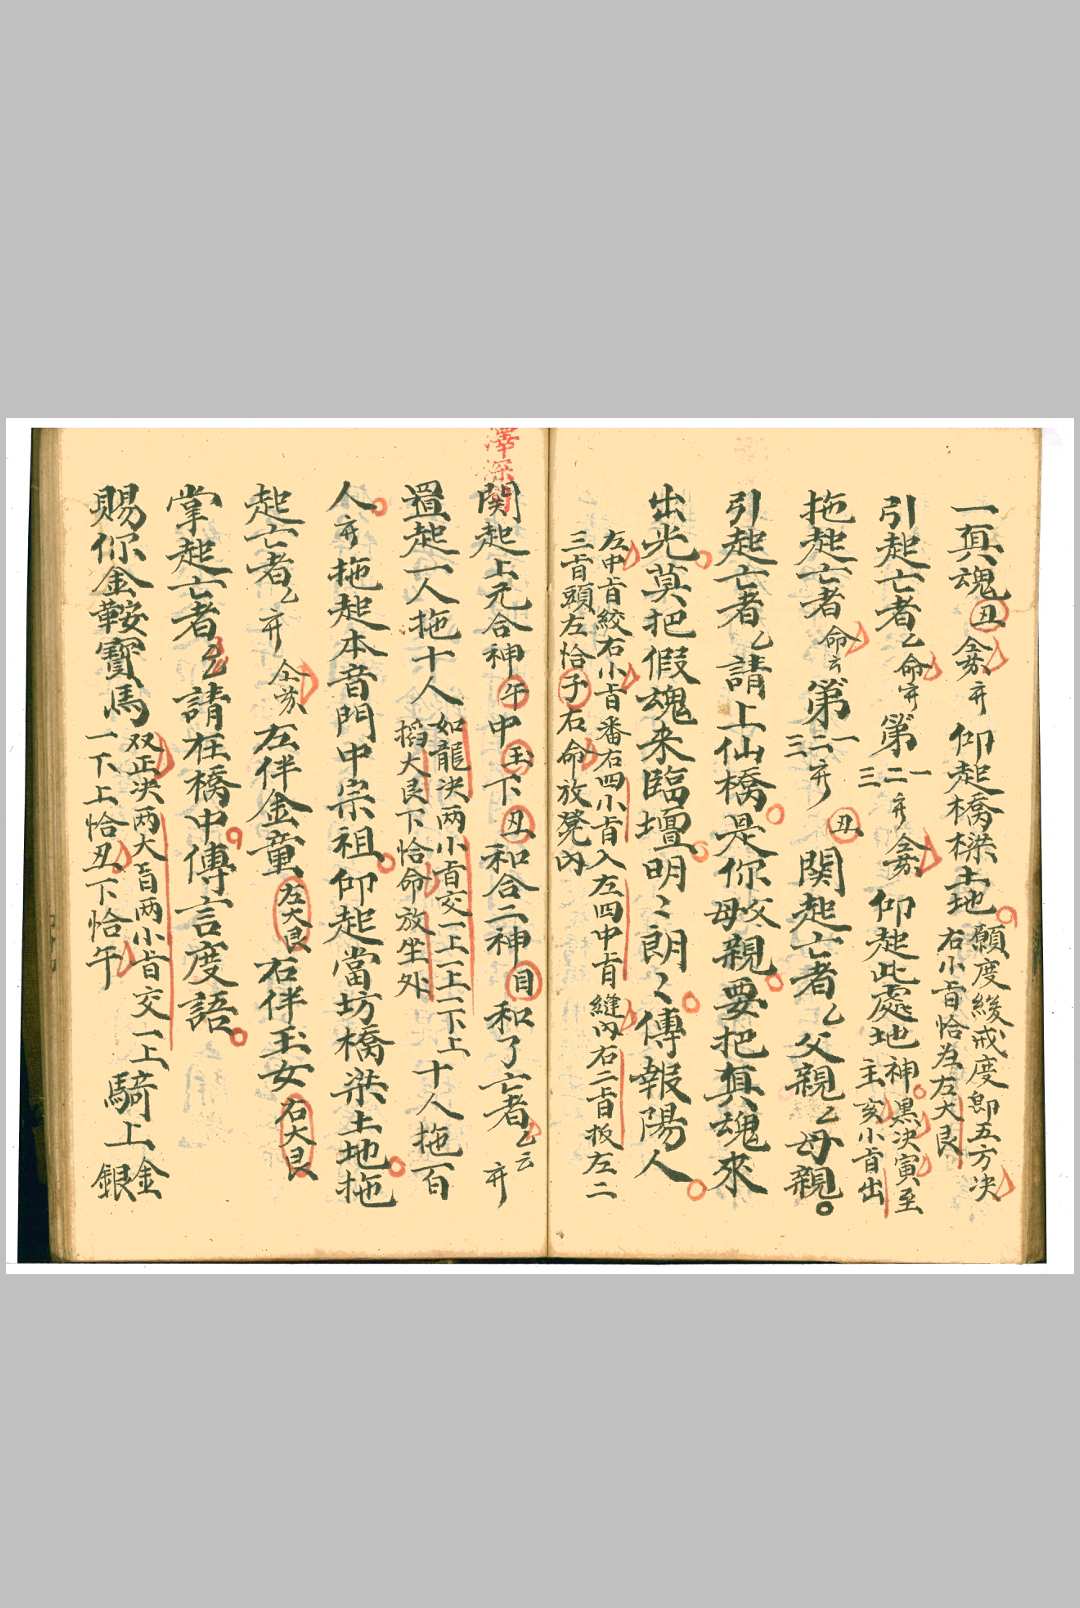 一真魂丑 仰起橋樑土地願度綾戒度郎五方决
右小盲恰為左大艮
引起亡者乙命 第一二三 仰起此處地神黑决寅至
主亥小盲出
拖起亡者命云 第一二三 丑 関起亡者乙父親乙母親
引起亡者乙請上仙橋是你父母親要把真魂來
出光莫把假魂来臨壇明〻朗〻傳報陽人
左中盲絞右小盲番右四小盲入左四中盲縫內右二盲扳左二
三盲頭左恰子右命放凳內
関起上元合神午中玉下丑和合二神目和了亡者乙云
置起一人拖十人如龍决两小盲交一上一上一下上
大艮下恰命放坐外 十人拖百
人 拖起本音門中宗祖仰起當坊橋梁土地拖
起亡者乙 左伴金童左大艮右伴玉女右大艮
掌起亡者乙請在橋中傳言度語
賜你金鞍寶馬双正决两大盲两小盲交一上
一下上恰丑下恰午 騎上金銀